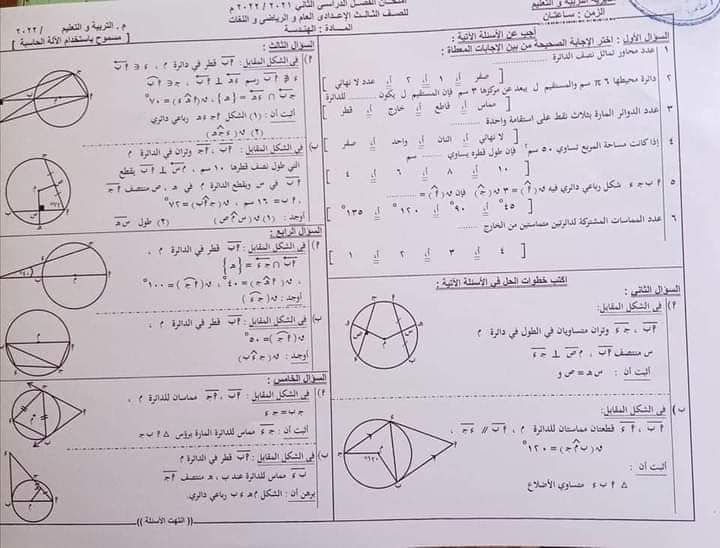 مديرية التربية و التعليم
الزمن : ساعتان
امتحان الفصل الدراسي الثاني ٢٠٢١ / ٢٠٢٢ م
للصف الثالث الإعدادى العام و الرياضى و اللغات
المـــادة : الهندسة
م . التربية و التعليم / ٢٠٢٢
[ مسموح باستخدام الآلة الحاسبة ]
أجب عن الأسئلة الآتية :
السؤال الأول : اختر الإجابة الصحيحة من بين الإجابات المعطاة :
١ عدد محاور تماثل نصف الدائرة ........
[ صفر أ، ١ أ، ٢ أ، عدد لا نهائي ]
٢ دائرة محيطها ٦ π سم والمستقيم ل يبعد عن مركزها ٣ سم فإن المستقيم ل يكون ........ للدائرة
[ مماس أ، قاطع أ، خارج أ، قطر ]
٣ عدد الدوائر المارة بثلاث نقط على استقامة واحدة ........
[ لا نهائي أ، اثنان أ، واحد أ، صفر ]
٤ إذا كانت مساحة المربع تساوي ٥٠ سم٢ فإن طول قطره يساوي ........ سم
[ ١٠ أ، ٨ أ، ٦ أ، ٤ ]
٥ أ ب جـ ء شكل رباعي دائري فيه ق(أ) = ٣ ق(جـ) فإن ق(أ) = ........
[ ٤٥° أ، ٩٠° أ، ١٢٠° أ، ١٣٥° ]
٦ عدد المماسات المشتركة لدائرتين متماستين من الخارج ........
[ ٤ أ، ٣ أ، ٢ أ، ١ ]
اكتب خطوات الحل في الأسئلة الآتية :
السؤال الثاني :
أ) في الشكل المقابل:
أب ، جـء وتران متساويان في الطول في دائرة م
س منتصف أب ، م ص ⊥ جـء
أثبت أن : س هـ = ص و
ب) في الشكل المقابل:
أب ، أء قطعتان مماستان للدائرة م ، أب // ء جـ ،
ق(ب م جـ) = ١٢٠°
أثبت أن :
△ أ ب ء متساوي الأضلاع
السؤال الثالث :
أ) في الشكل المقابل : أب قطر في الدائرة م ،
أثبت أن : (١) الشكل أ جـ ء هـ رباعي دائري
ب) في الشكل المقابل : أب ، أجـ وتران في الدائرة م
التي طول نصف قطرها ١٠ سم ، م س ⊥ أب يقطع
أب في س ويقطع الدائرة م في هـ ، ص منتصف أجـ
، أب = ١٦ سم ، ق(جـ أ ب) = ٧٢°
أوجد : (١) ق(س م ص) (٢) طول س هـ
السؤال الرابع :
أ) في الشكل المقابل : أب قطر في الدائرة م ،
أب ∩ جـء = {هـ}
، ق(أ هـ جـ) = ٤٠° ، ق(أ جـ) = ١٠٠°
أوجد : ق(جـ ء)
ب) في الشكل المقابل : أب قطر في الدائرة م ،
ق(أ جـ) = ٥٠°
أوجد : ق(جـ ء ب)
السؤال الخامس :
أ) في الشكل المقابل : أب ، أجـ مماسان للدائرة م ،
جـ ب = جـ ء
أثبت أن : جـء مماس للدائرة المارة برؤس △ أ ب جـ
ب) في الشكل المقابل : أب قطر في الدائرة م
مماس للدائرة عند ب ، هـ منتصف أجـ
برهن أن : الشكل م هـ ء ب رباعي دائري.
(( انتهت الأسئلة ))